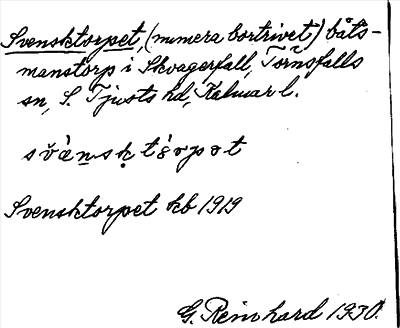 Svensktorpet, (numera bortrivet) båts-
manstorp i Skvagerfall, Törnsfalls
sn, S. Tjusts hd, Kalmar l.
svànskt
Svensktorpet kb 1919
G. Reinhard 1930.